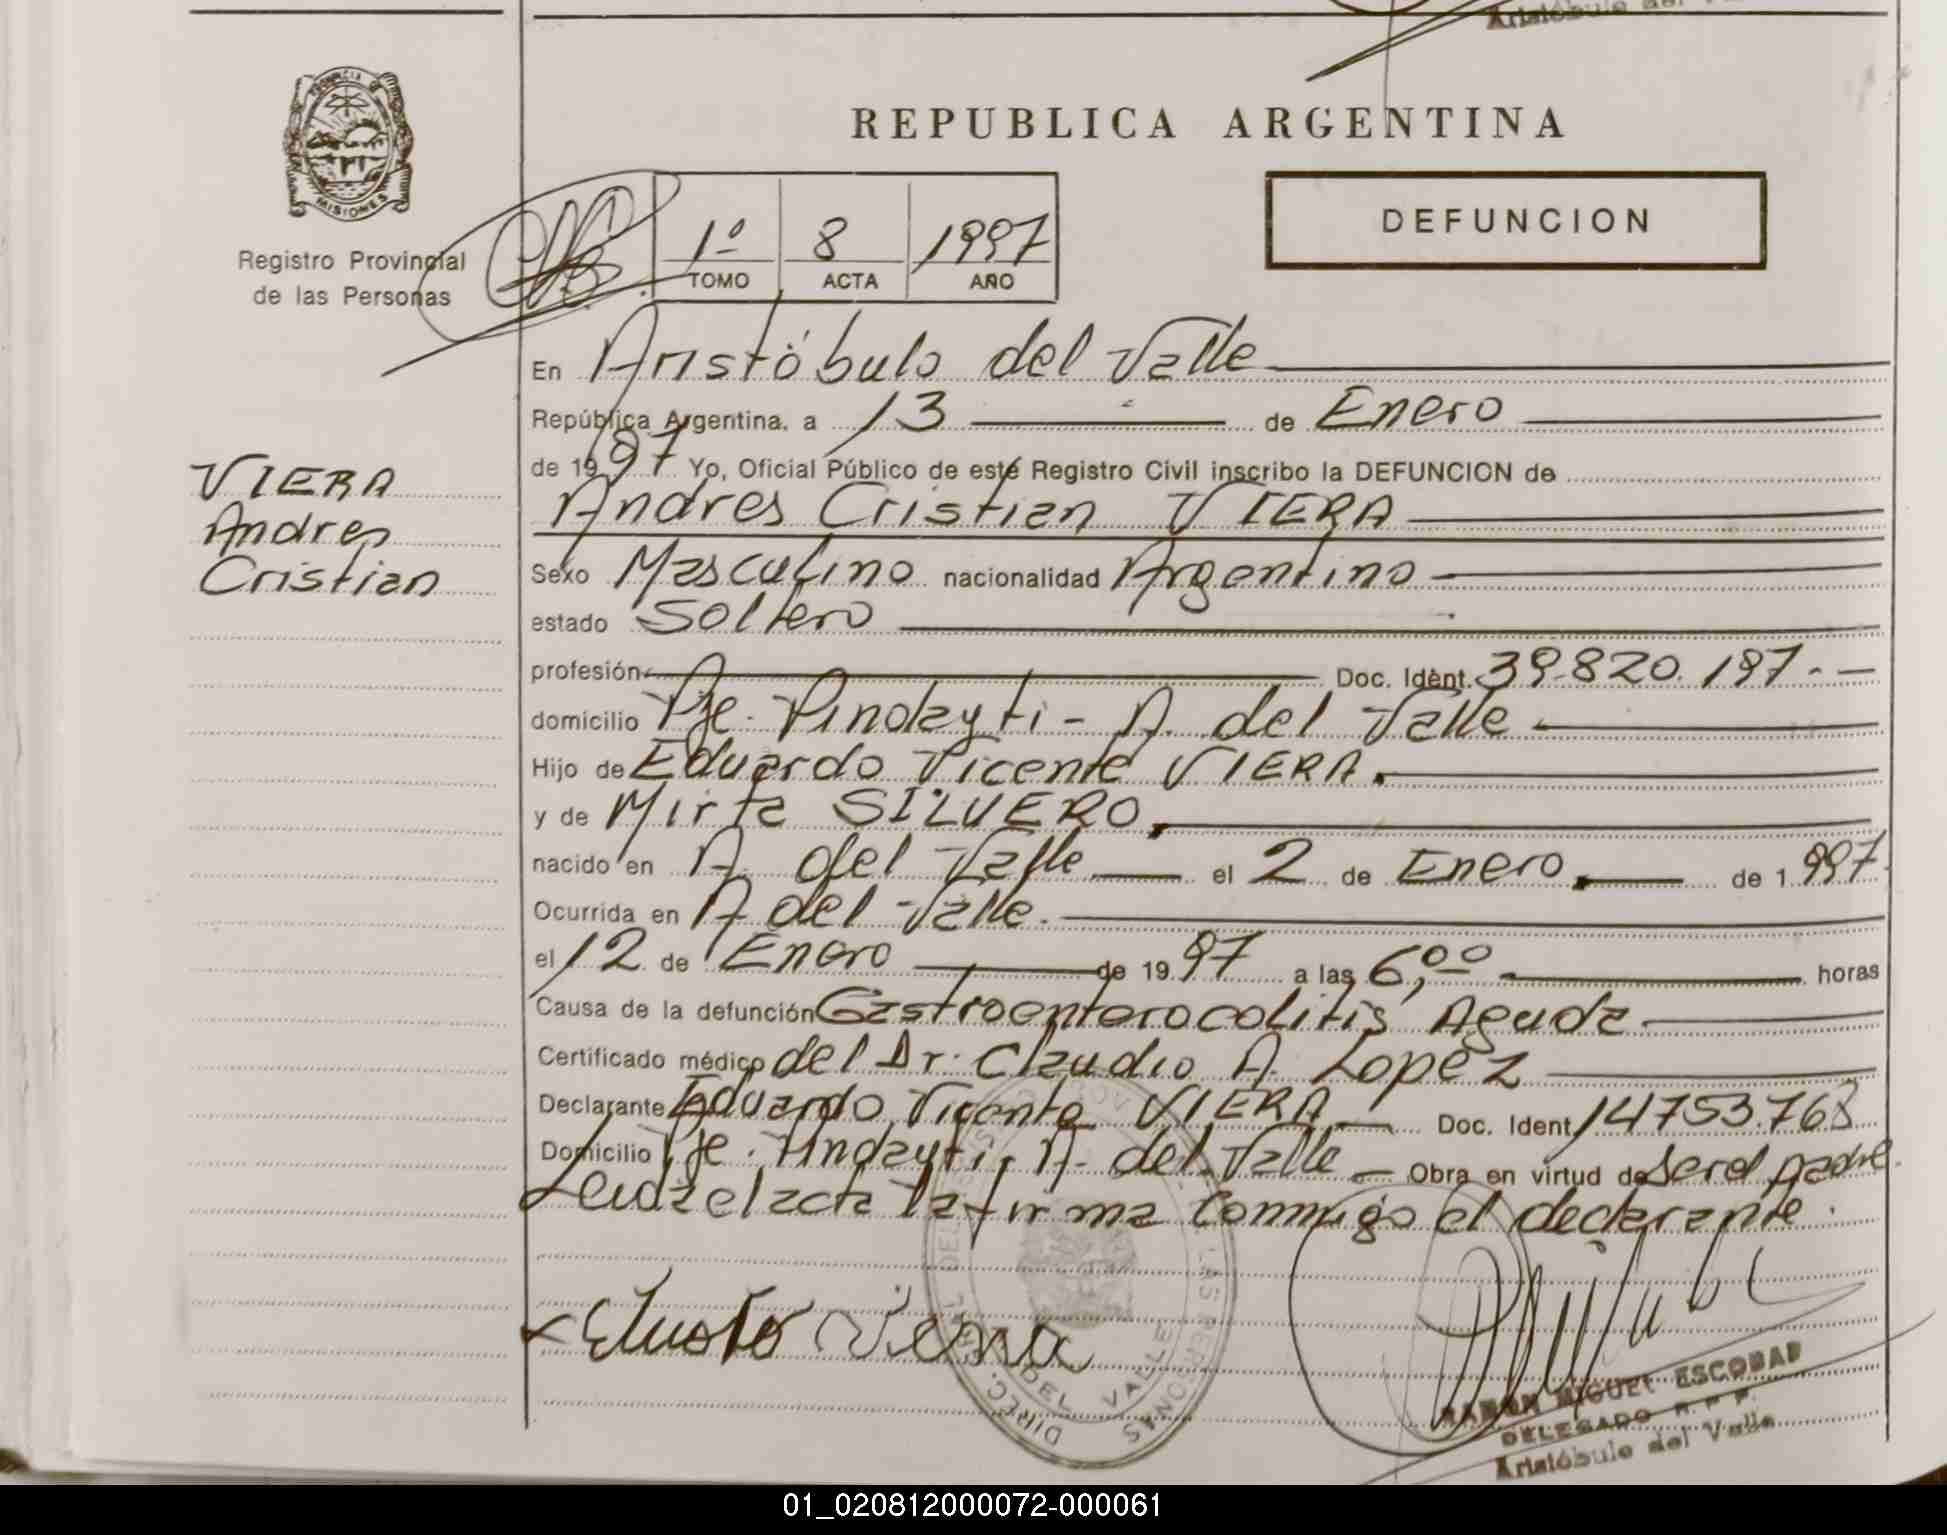 Aristóbulo del
REPUBLICA ARGENTINA
PROVINCIA DE
MISIONES
Registro Provincial
de las Personas
1º 8 1997
TOMO ACTA AÑO
DEFUNCION
En Aristóbulo del Valle
República Argentina, a 13 de Enero
de 1997 Yo, Oficial Público de este Registro Civil inscribo la DEFUNCION de
Andres Cristian VIERA
VIERA
Andres
Cristian
Sexo Masculino nacionalidad Argentino
estado Soltero
profesión Doc. Ident. 39.820.197.-
domicilio Pje. Pindayti - A. del Valle
Hijo de Eduardo Vicente VIERA.
y de Mirta SILVERO.
nacido en A. del Valle el 2 de Enero. de 1.997
Ocurrida en A del Valle.
el 12 de Enero de 1997 a las 6,00 horas
Causa de la defunción Gastroenterocolitis Aguda
Certificado médico del Dr. Claudio A. Lopez
Declarante Eduardo Vicente VIERA Doc. Ident 14753.768
Domicilio Pje. Pindayti, A. del Valle Obra en virtud de ser el padre.
Leida el acta la firma conmigo el declarante.
Viera
DEL VALLE
LAS PERSONAS
RAMON MIGUEL ESCOBAR
DELEGADO R. P. P.
Aristóbulo del Valle
01_020812000072-000061